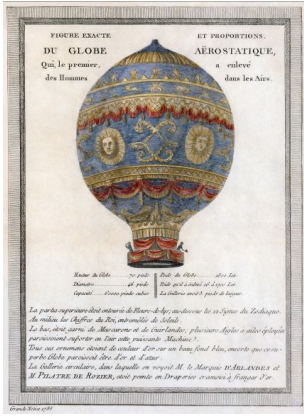 FIGURE EXACTE ET PROPORTIONS,
DU GLOBE AËROSTATIQUE,
Qui, le premier, a enlevé
des Hommes dans les Airs.
Hauteur du Globe 70. pieds
Diametre 46. pieds
Capacité 60000 pieds cubes
Poids du Globe 1600 Liv.
Poids qu'il a enlevé
La Gallerie avoit 3. pieds de largeur
La partie superieure étoit entourée de Fleurs-de-lys, au-dessous les 12 Signes du Zodiaque.
Au milieu les Chiffres du Roi, entremêlés de Soleils
Le bas, étoit garni de Mascarons et de Guirlandes, plusieurs Aigles à ailes éployées
paroissoient supporter en l'air cette puissante Machine.
Tous ces ornemens étoient de couleur d'or sur un beau fond bleu, ensorte que ce su-
perbe Globe paroissoit être d'or et d'azur.
La Gallerie circulaire, dans laquelle on voyoit M. le Marquis D'ARLANDES et
M. PILATRE DE ROZIER, étoit peinte en Draperies cramoisi à franges d'or.
1786